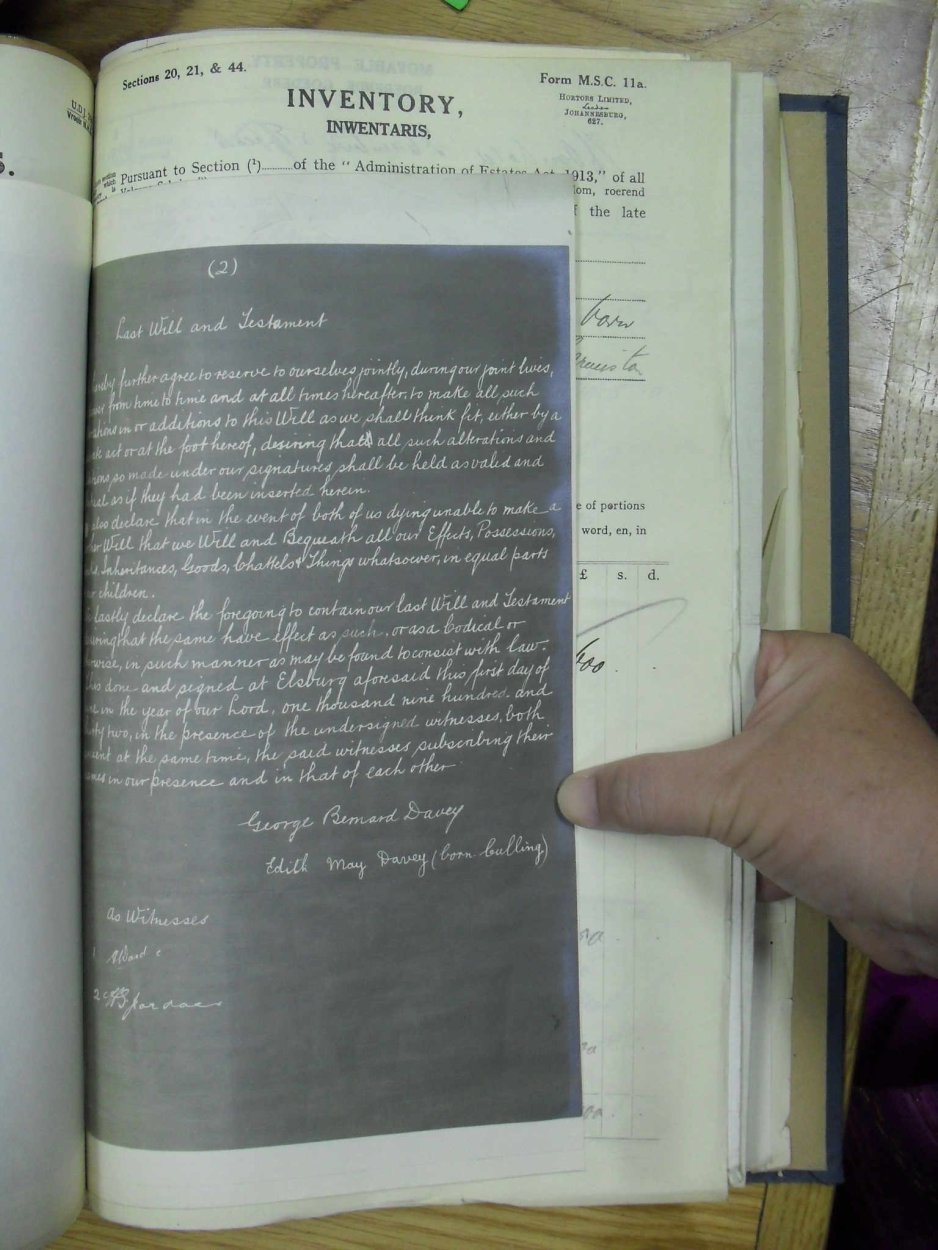 Sections 20, 21, & 44.
Form M.S.C. 11a.
HORTORS LIMITED,
JOHANNESBURG,
627.
INVENTORY,
INWENTARIS,
Pursuant to Section (¹)..........of the "Administration of Estates Act, 1913," of all
dom, roerend
f the late
(2)
Last Will and Testament
ereby further agree to reserve to ourselves jointly, during our joint lives,
from time to time and at all times hereafter, to make all such
ations in or additions to this Will as we shall think fit, either by a
ate act or at the foot hereof, desiring that all such alterations and
tions so made under our signatures shall be held as valid and
tual as if they had been inserted herein.
also declare that in the event of both of us dying unable to make a
her Will that we Will and Bequeath all our Effects, Possessions,
Inheritances, Goods, Chattels & Things whatsoever, in equal parts
children.
lastly declare the foregoing to contain our last Will and Testament
iring that the same have effect as such, or as a Codical or
rwise, in such manner as may be found to consist with law.
his done and signed at Elsburg aforesaid this first day of
ne in the year of Our Lord, one thousand nine hundred and
two, in the presence of the undersigned witnesses, both
esent at the same time, the said witnesses subscribing their
ames in our presence and in that of each other
George Bernard Davey
Edith May Davey (born Culling)
As Witnesses
1
2
born
e of portions
word, en, in
£ s. d.